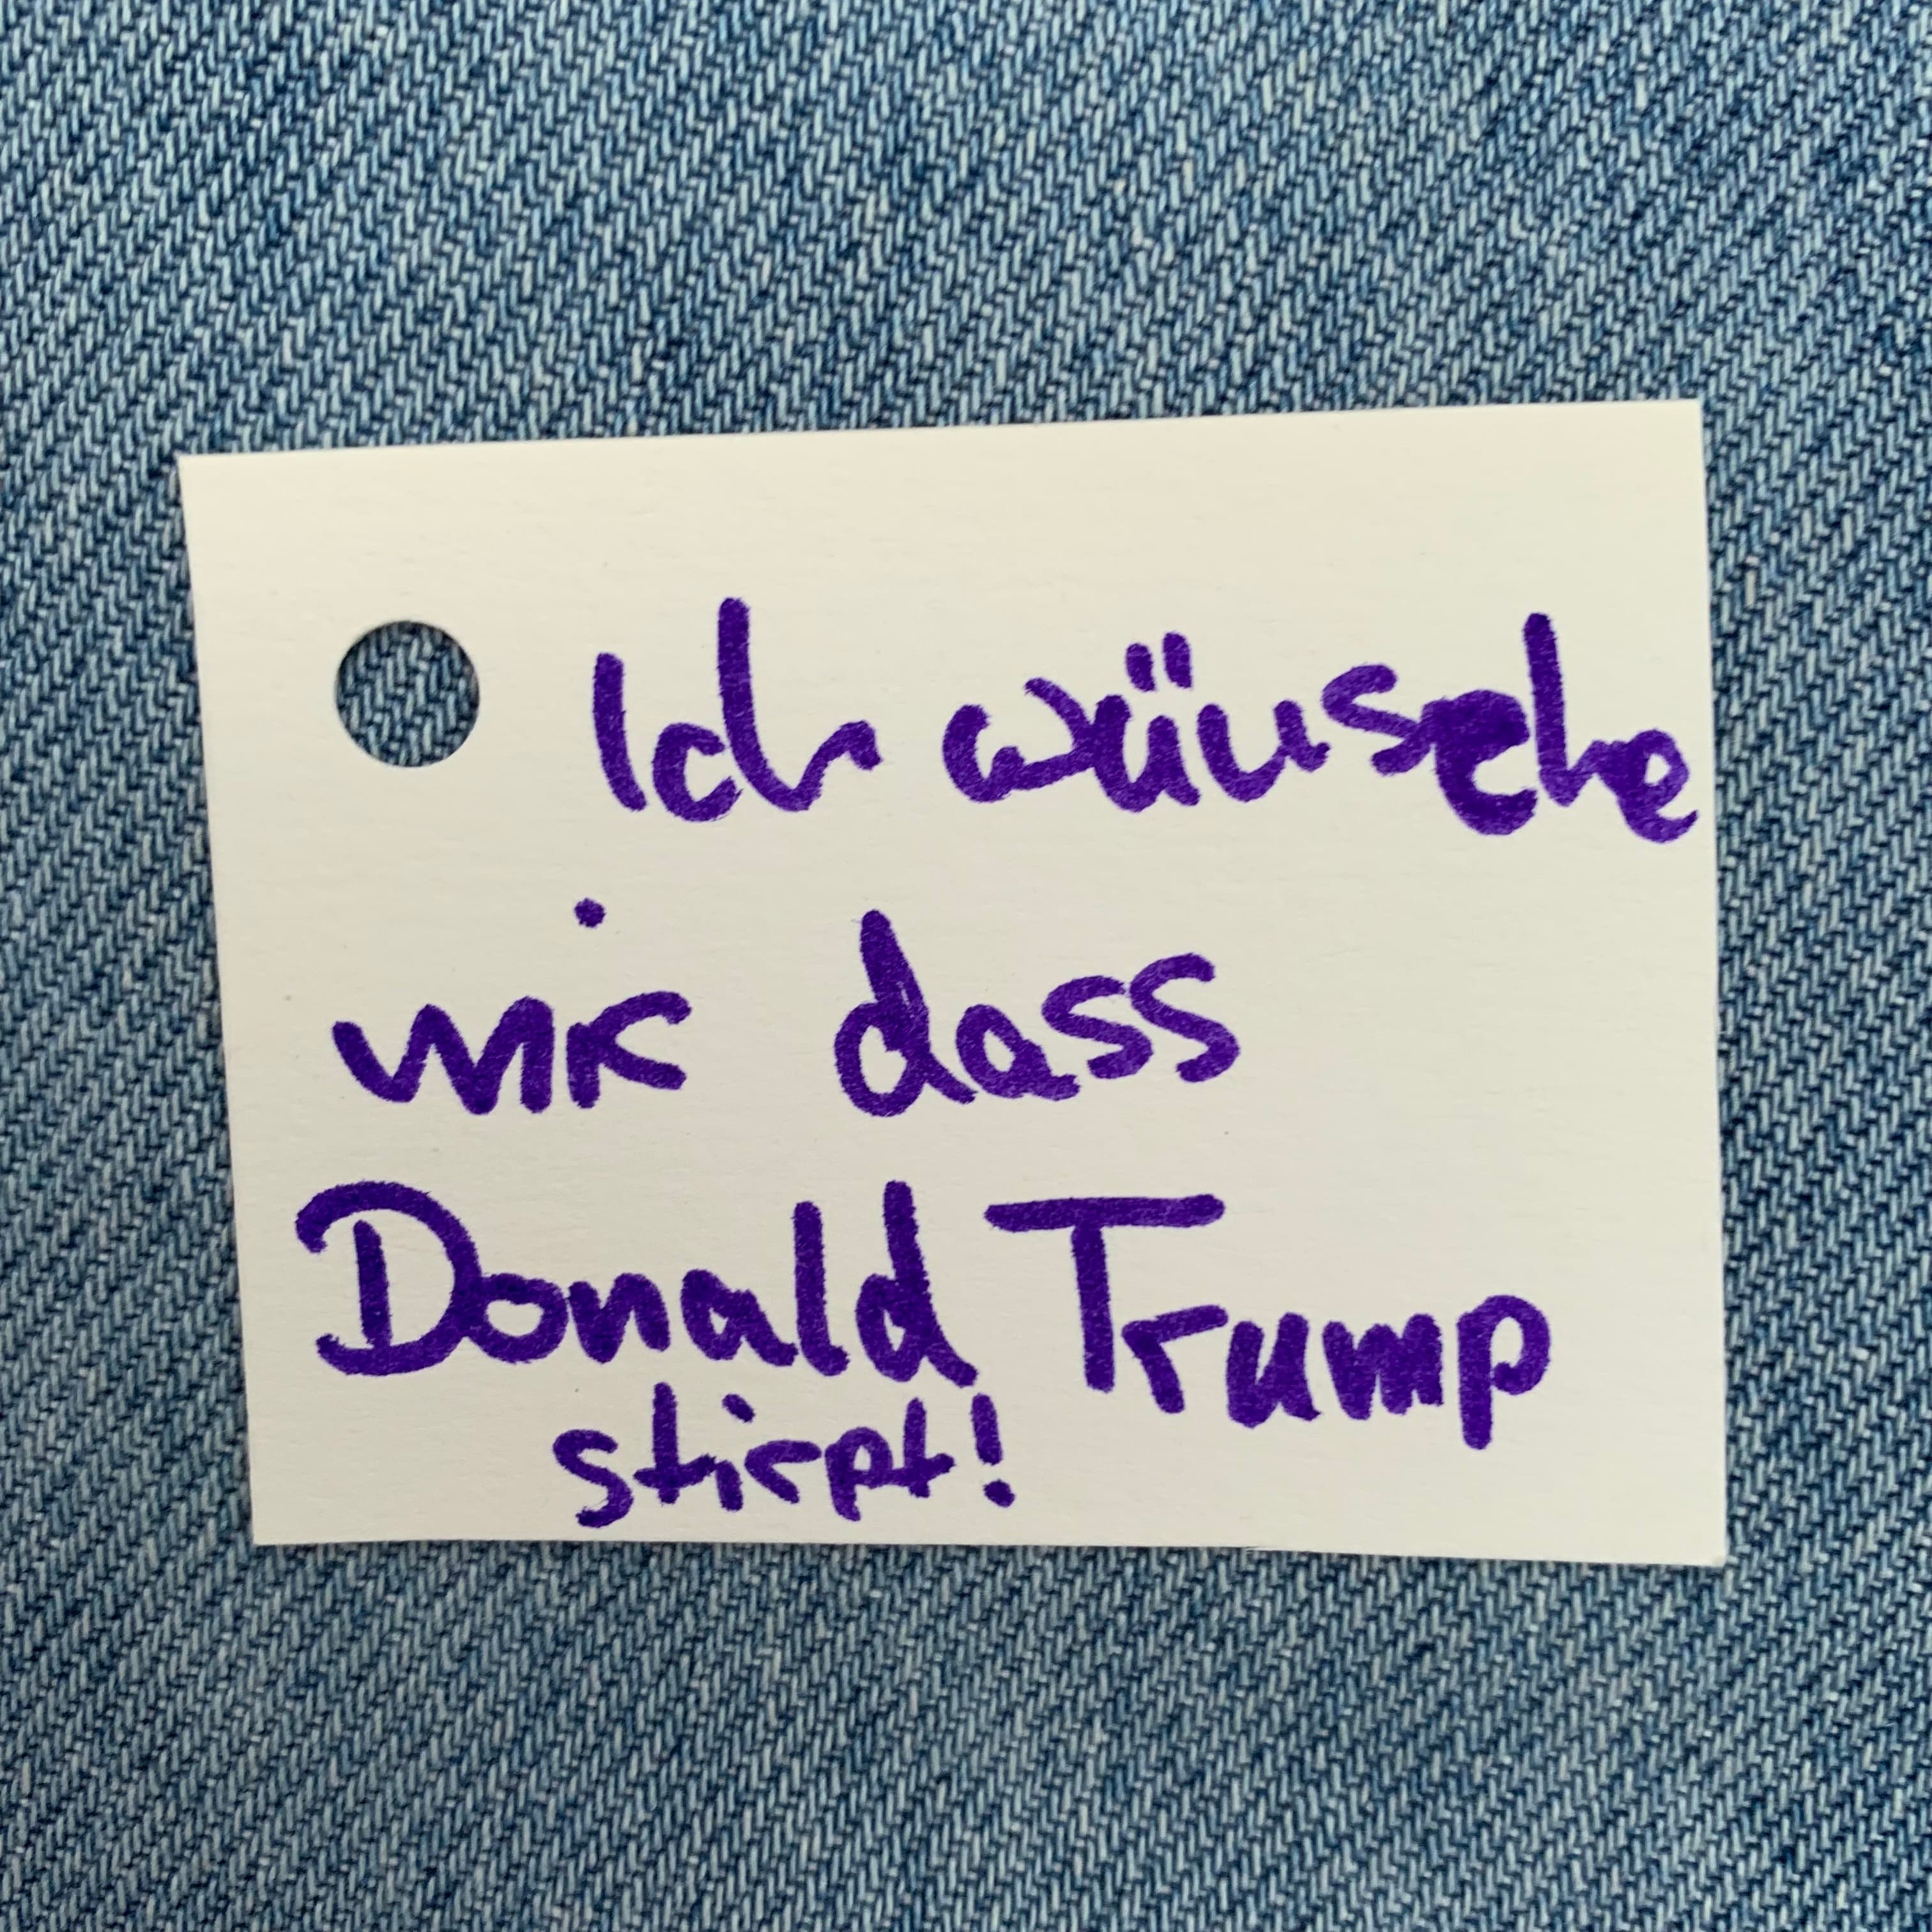 Ich wünsche
mir dass
Donald Trump
stirpt!